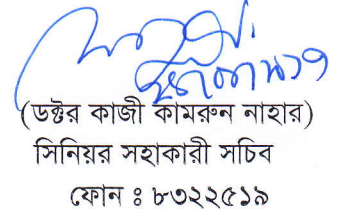 (ডক্টর কাজী কামরুন নাহার)
সিনিয়র সহাকারী সচিব
ফোন ঃ ৮৩২২৫১৯